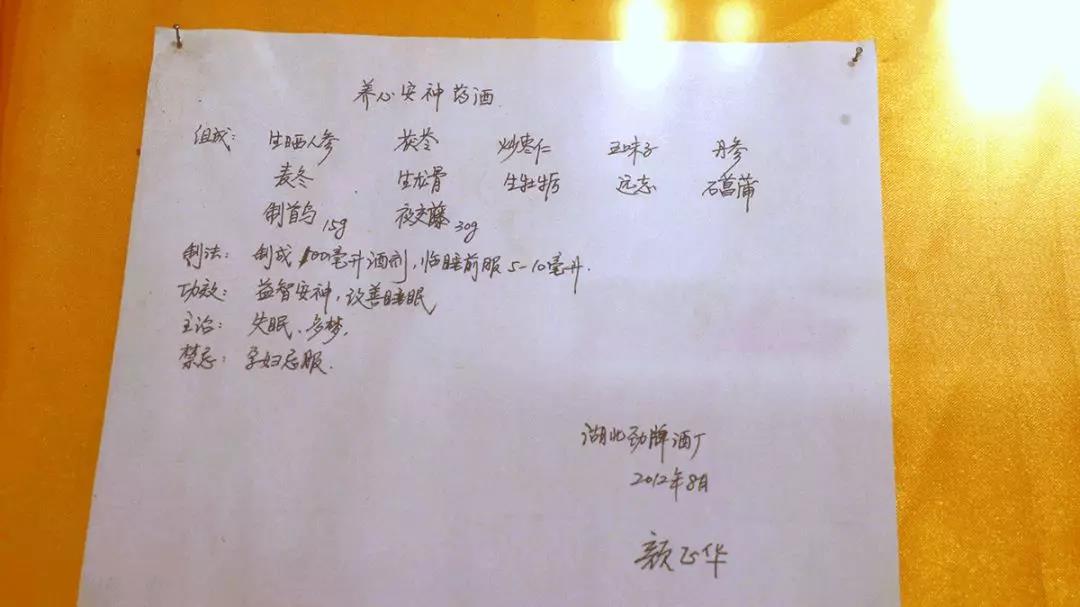 养心安神药酒
组成: 生晒人参 茯苓 炒枣仁 五味子 丹参
麦冬 生龙骨 生牡蛎 远志 石菖蒲
制首乌15g 夜交藤30g
制法: 制成100毫升酒剂,临睡前服5-10毫升.
功效: 益智安神,改善睡眠
主治: 失眠、多梦.
禁忌: 孕妇忌服.
湖北劲牌酒厂
2012年8月
颜正华